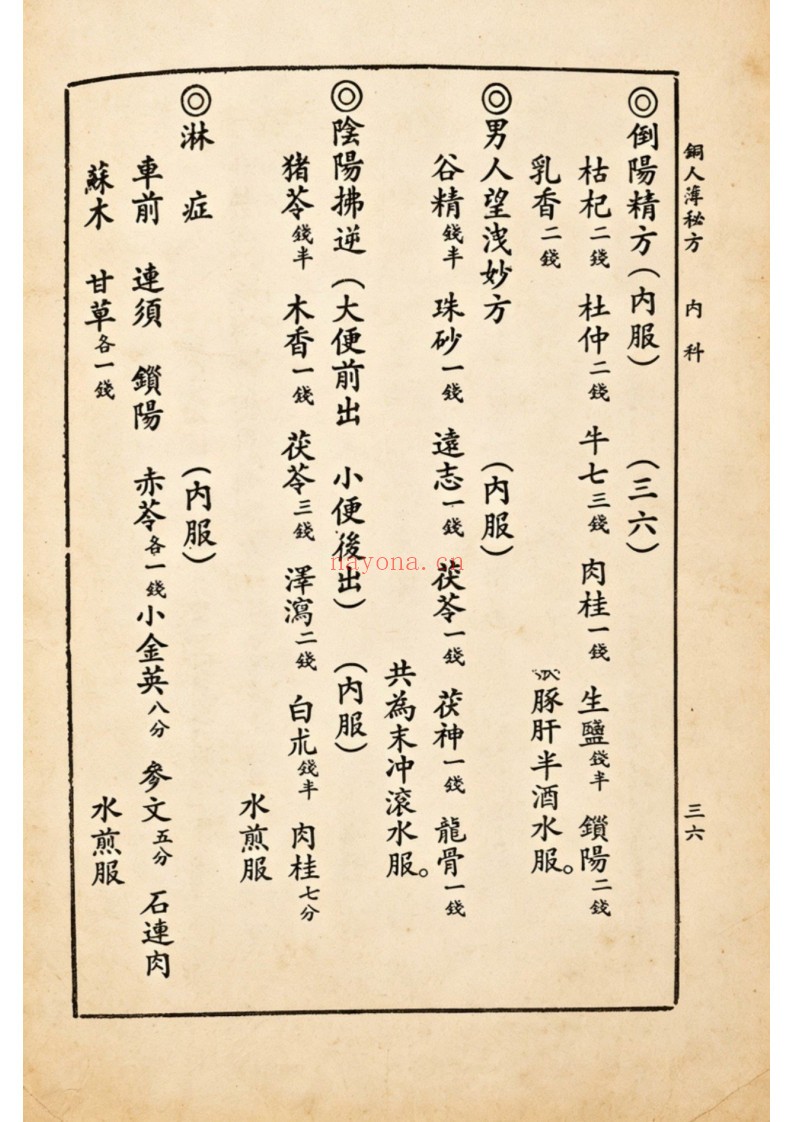 銅人薄秘方 內科 三六
◎倒陽精方(內服) (三六)
枯杞二錢 杜仲二錢 牛七三錢 肉桂一錢 生鹽錢半 鎖陽二錢
乳香二錢 豚肝半酒水服。
◎男人望洩妙方 (內服)
谷精錢半 珠砂一錢 遠志一錢 茯苓一錢 茯神一錢 龍骨一錢
共為末冲滾水服。
◎陰陽拂逆(大便前出 小便後出) (內服)
猪苓錢半 木香一錢 茯苓三錢 澤瀉二錢 白朮錢半 肉桂七分
水煎服
◎淋 症 (內服)
車前 連須 鎖陽 赤苓各一錢 小金英八分 參文五分 石連肉
蘇木 甘草各一錢 水煎服
nayona.cn